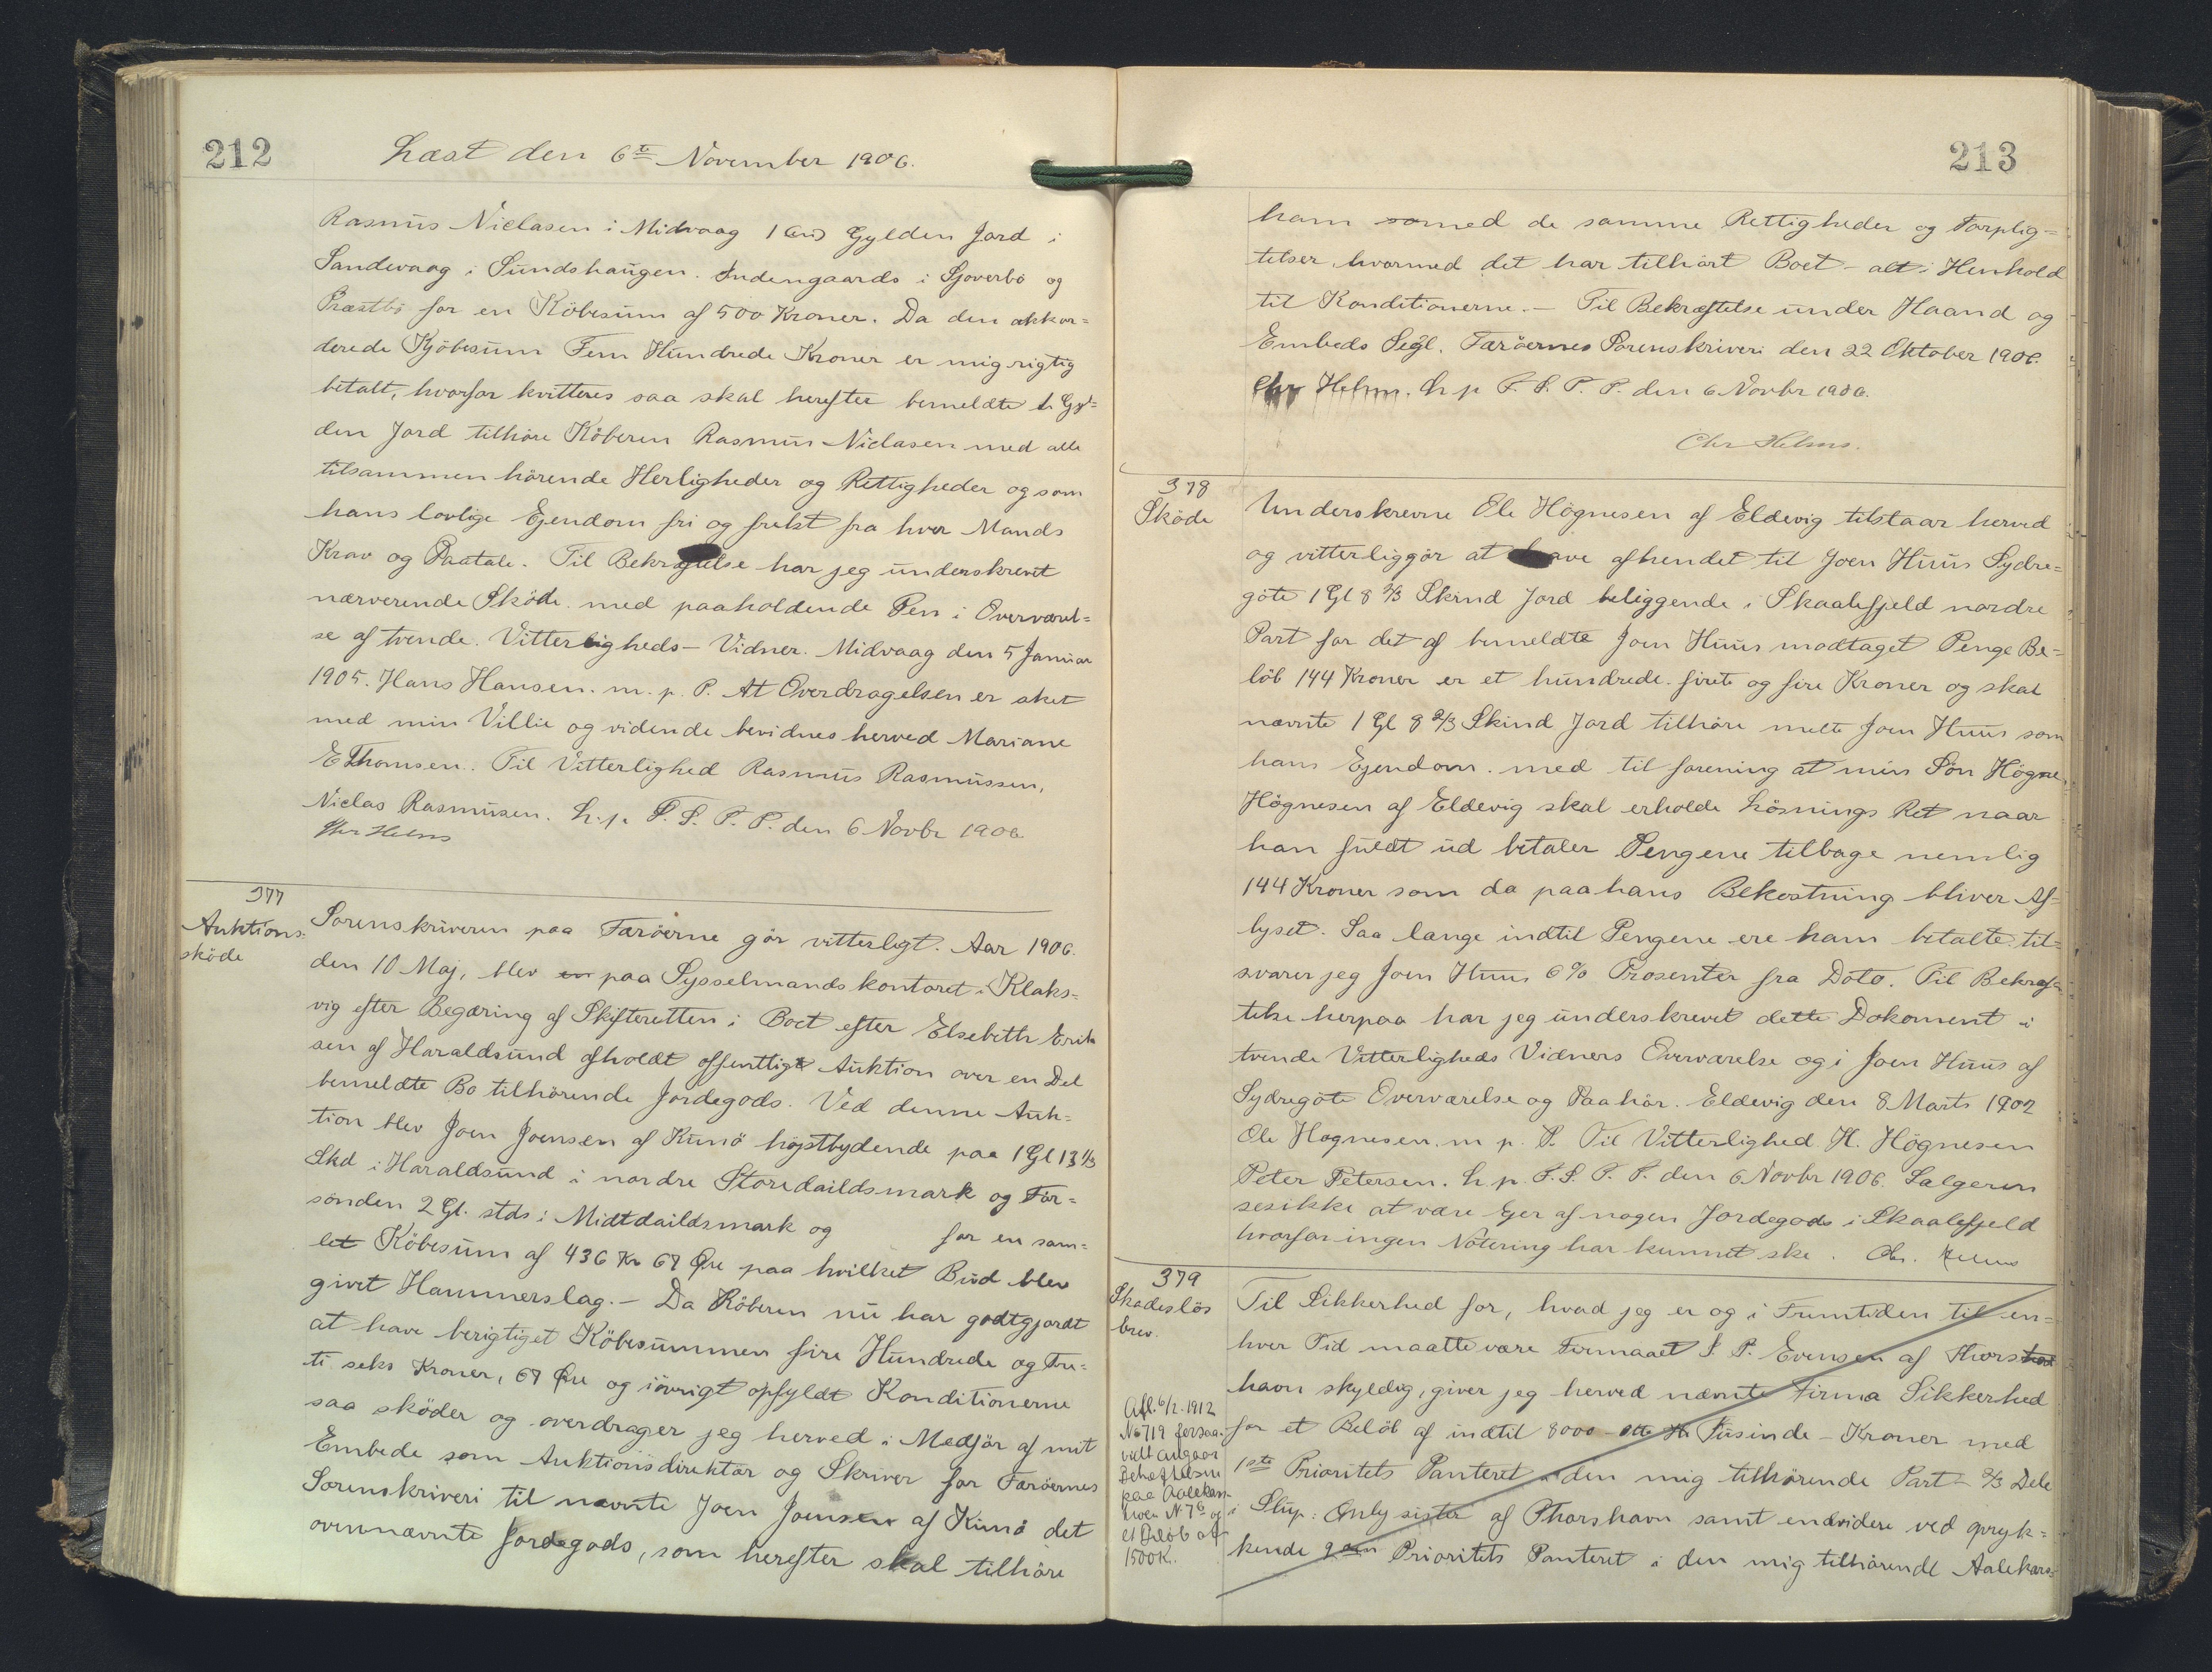 212
Læst den 6te November 1906.
Rasmus Niclasen i Midvaag 1 (en) Gylden Jord i
Sandevaag i Sundshaugen. Indengaards i Sjoverbö og
Præstbö for en Köbesum af 500 Kroner. Da den akkor=
derede Kjöbesum Fem Hundrede Kroner er mig rigtig
betalt, hvorfor kvitteres saa skal herefter bemeldte 1 Gyl=
den Jord tilhöre Köberen Rasmus Niclasen med alle
tilsammen hörende Herligheder og Rettigheder og som
hans lovlige Ejendom fri og frelst fra hver Mands
Krav og Paatale. Til Bekræftelse har jeg underskrevet
nærverende Sköde med paaholdende Pen i Overværel=
se af tvende Vitterligheds-Vidner. Midvaag den 5 Januar
1905. Hans Hansen. m. p. P. At Overdragelsen er sket
med min Villie og vidende bevidnes herved Mariane
E Thomsen. Til Vitterlighed Rasmus Rasmussen,
Niclas Rasmusen. L. p. F. S. P. P. den 6 Novbr 1906
Chr Helms
377
Auktions-
sköde
Sorenskriveren paa Færöerne gör vitterligt. Aar 1906.
den 10 Maj, blev en paa Sysselmandskontoret i Klaks=
vig efter Begæring af Skifteretten i Boet efter Elsebeth Erik
sen af Haraldsund afholdt offentligt Auktion over en Del
bemeldte Bo tilhörende Jordegods. Ved denne Auk=
tion blev Joen Joensen af Kunö höjstbydende paa 1 Gl 13 1/3
Skd i Haraldsund i nordre Storedaildsmark og För=
sönden 2 Gl. stds i Midtdaildsmark og for en sam=
let Köbesum af 436 Kr 67 Öre paa hvilket Bud blev
givet Hammerslag.- Da Köberen nu har godtgjordt
at have berigtiget Köbesummen fire Hundrede og Tre=
ti seks Kroner, 67 Öre og iövrigt opfyldt Konditionerne
saa sköder og overdrager jeg herved i Medför af mit
Embede som Auktionsdirektör og Skriver for Færöernes
Sorenskriveri til nævnte Joen Joensen af Kunö det
ovennævnte Jordegods, som herefter skal tilhöre
213
ham somed de samme Rettigheder og Forplig=
telser, hvormed det har tilhört Boet - alt i Henhold
til Konditionerne.- Til Bekræftelse under Haand og
Embeds Segl. Færöernes Sorenskriveri den 22 Oktober 1906.
Chr Helms. L. p. F. S. P. P. den 6 Novbr 1906.
Chr Helms.
378
Sköde
Underskrevne Ole Högnesen af Eldevig tilstaar herved
og vitterliggör at have afhendet til Joen Huus Sydre=
göte 1 Gl 8 2/3 Skind Jord beliggende i Skaalefjeld nordre
Part for det af bemeldte Joen Huus modtaget Penge Be=
löb 144 Kroner er et hundrede firete og fire Kroner og skal
nævnte 1 Gl 8 2/3 Skind Jord tilhöre melte Joen Huus som
hans Ejendom. med til forening at min Sön Högne
Högnesen af Eldevig skal erholde Lösnings Ret naar
han fuldt ud betaler Pengene tilbage nemlig
144 Kroner som da paa hans Bekostning bliver Af=
lyset. Saa lange indtil Pengene ere ham betalte til=
svarer jeg Joen Huus 6% Prosenter fra Doto. Til Bekræf=
telse herpaa har jeg underskrevet dette Dokoment i
tvende Vitterligheds Vidners Overværelse og i Joen Huus af
Sydregöte Overværelse og Paahör. Eldevig den 8 Marts 1902
Ole Högnesen. m p. P. Til Vitterlighed H. Högnesen
Peter Petersen. L. p. F. S. P. P. den 6 Novbr 1906. Sælgeren
sesikke at være Ejer af nogen Jordegods i Skaalefjeld
hvorfor ingen Notering har kunnet ske. Chr. Helms
379
Skadeslös
brev.
Til Sikkerhed for, hvad jeg er og i Fremtiden til en=
hver Tid maatte være Firmaaet S. P. Evensen af Thorshav
havn skyldig, giver jeg herved nævnte Firma Sikkerhed
for et Belöb af indtil 8000 - Otte Tusinde - Kroner med
1ste Prioritets Panteret i den mig tilhörende Part - 2/3 Dele
i Slup: Only sister af Thorshavn samt endvidere ved opryk=
kende 2den Prioritets Panteret i den mig tilhörende Aalekars=
Afl. 6/2. 1912
No 719 forsaa-
vidt angaar
Behæftelsen
paa Aalekars-
hven No 76 og
et Belöb af
1500 K.